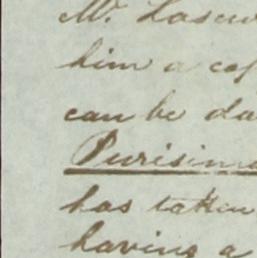 Mr. Lasew
him a cop
can be da
Purisima
has taken
having a